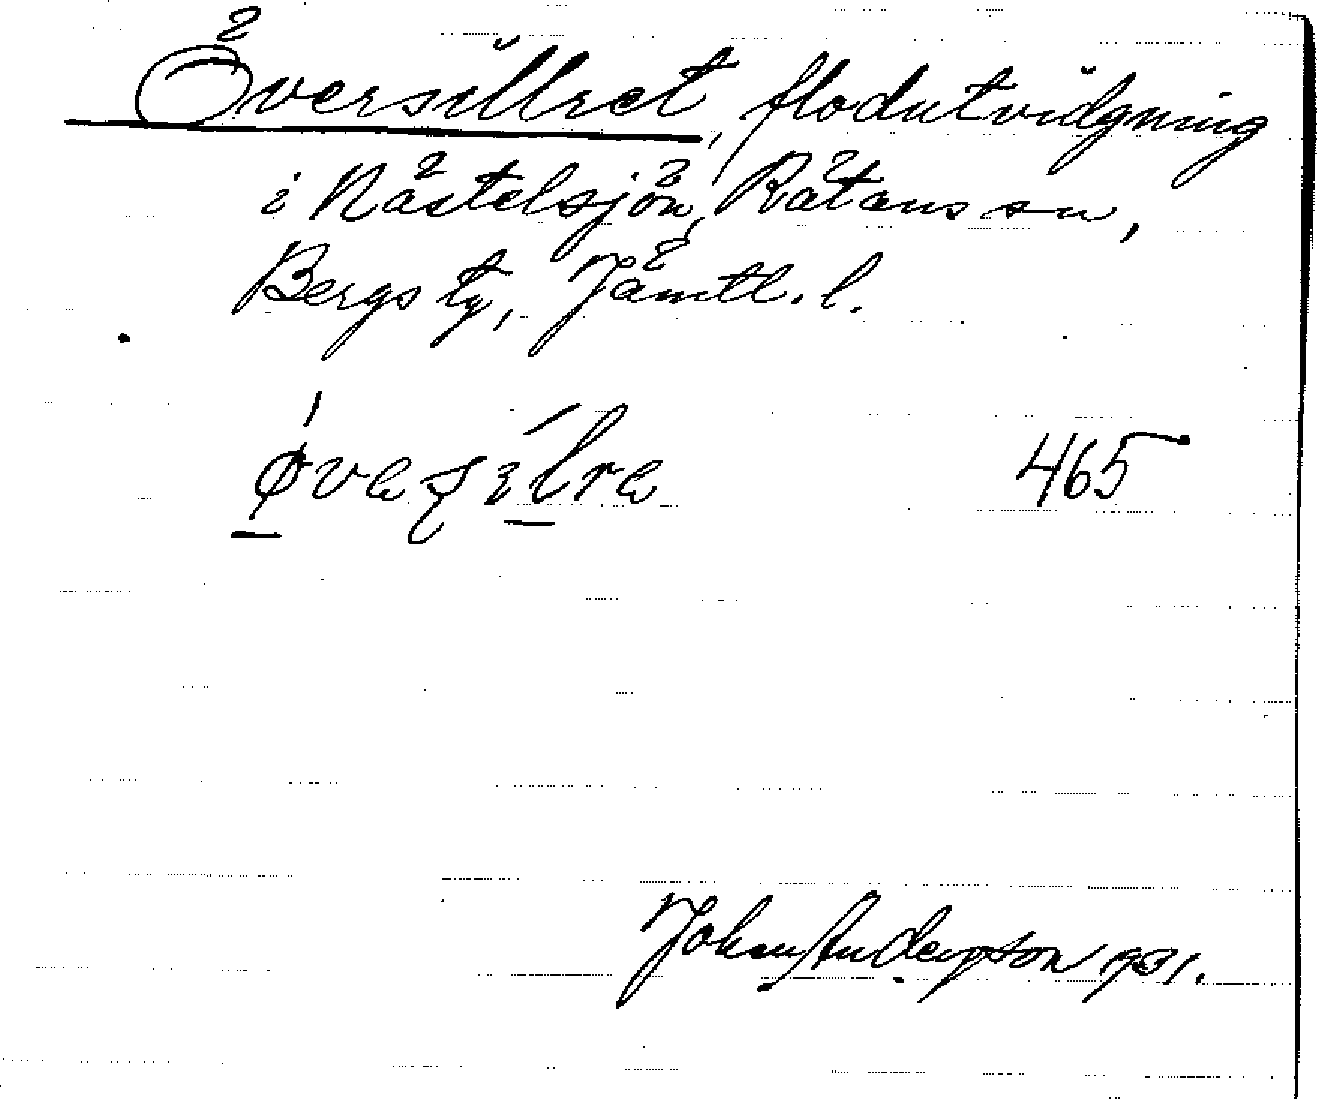 Översillret, flodutvidgning
i Nästelsjön, Rätans sn,
Bergs tg, Jämtl. l.
465
Johan Anderson 1931.